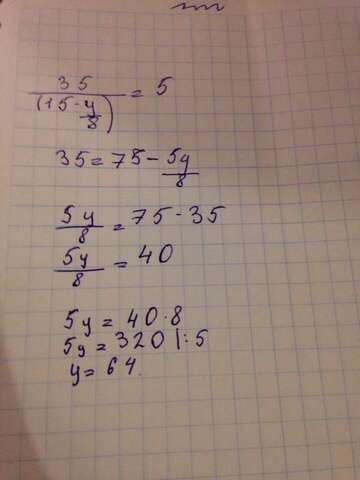 35/(15-y/8) = 5
35 = 75 - 5y/8
5y/8 = 75 - 35
5y/8 = 40
5y = 40·8
5y = 320 |:5
y = 64.